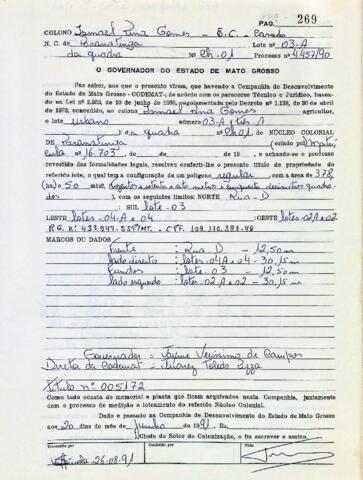 PAG. 269
COLONO Ismael Pina Gomes - B.C. - Casado
N. C. de Paranatinga Lote nº 03-A
da quadra Nº Ch.01 Processo nº 4.457/90
O GOVERNADOR DO ESTADO DE MATO GROSSO
Faz saber, aos que o presente virem, que havendo a Companhia de Desenvolvimento
do Estado de Mato Grosso - CODEMAT-, de acordo com os pareceres Técnico e Jurídico, baseados
na Lei nº 2.903, de 10 de junho de 1980, regulamentada pelo Decreto nº 1.138, de 30 de abril
de 1970, concedido, ao colono Ismael Pina Gomes agricultor,
o lote urbano número 03-A (três-A
) da quadra Nº Ch.01 do NÚCLEO COLONIAL
DE Paranatinga (criado por matrí
cula nº 16.703 de de de 19 , e achando-se o processo
revestido das formalidades legais, resolveu conferir-lhe o presente título de propriedade do
referido lote, o qual tem a configuração de um polígono regular com a área de 378,
(ha) 50 mts2, trezentos e setenta e oito metros e cinquenta decímetros quadra
dos ), com os seguintes limites: NORTE Rua - D
SUL lote - 03
LESTE lotes - 04-A e 04 :OESTE lotes 02A e 02
R.G. nº 433.947-SSP/MT. - CPF. 109.130.381-48
MARCOS OU DADOS
Frente : Rua - D - 12,50m
lado direito : lotes - 04A e 04 - 30,15m
Fundos : lote - 03 - 12,50m
lado esquerdo : lotes - 02A e 02 - 30,15m
Governador = Jayme Veríssimo de Campos
Diretor da Codemat = Juarez Toledo Pizza
Título nº 005172
Como tudo consta do memorial e planta que ficam arquivados nesta Companhia, juntamente
com o processo de medição e loteamento do referido Núcleo Colonial.
Dado e passado na Companhia de Desenvolvimento do Estado de Mato Grosso
aos 20 dias do mês de junho de 1991. Eu,
Chefe do Setor de Colonização, o fiz escrever e assino.
Conferido por Visto
26-08-91